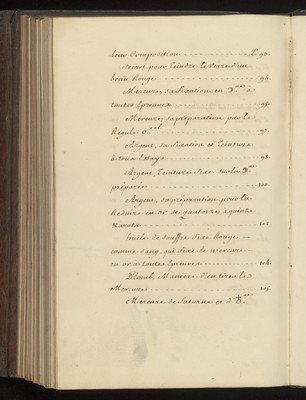 leur Composition ........ P. 93.
Secret pour Teindre le Verre d'un
beau Rouge ........ 94.
Mercure, sa fixation en ☽ à
toutes Epreuves ........ 95.
Mercure, sa préparation par le
Regule ........ 97.
Argent, sa fixation et Teinture
à tous Essays ........ 98.
Argent, Teinture fixe sur la ☽
préparée ........ 100.
Argent, sa préparation pour la
Reduire en or de quatorze à quinze
Karats ........ 102.
huile de Souffre fixe Rouge
comme sang, qui fixe le mercure
en or à toutes Epreuves ........ 104.
Plomb, Maniere d'en tirer le
Mercure ........ 105.
Mercure de Saturne et d'